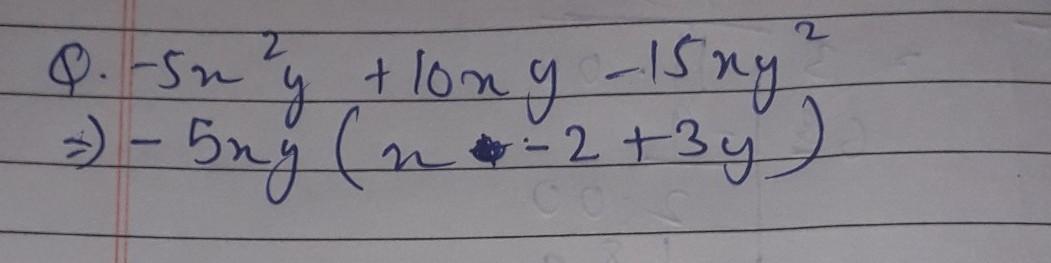 Q. -5x²y + 10xy - 15xy²
⇒) - 5xy (x - 2 + 3y)